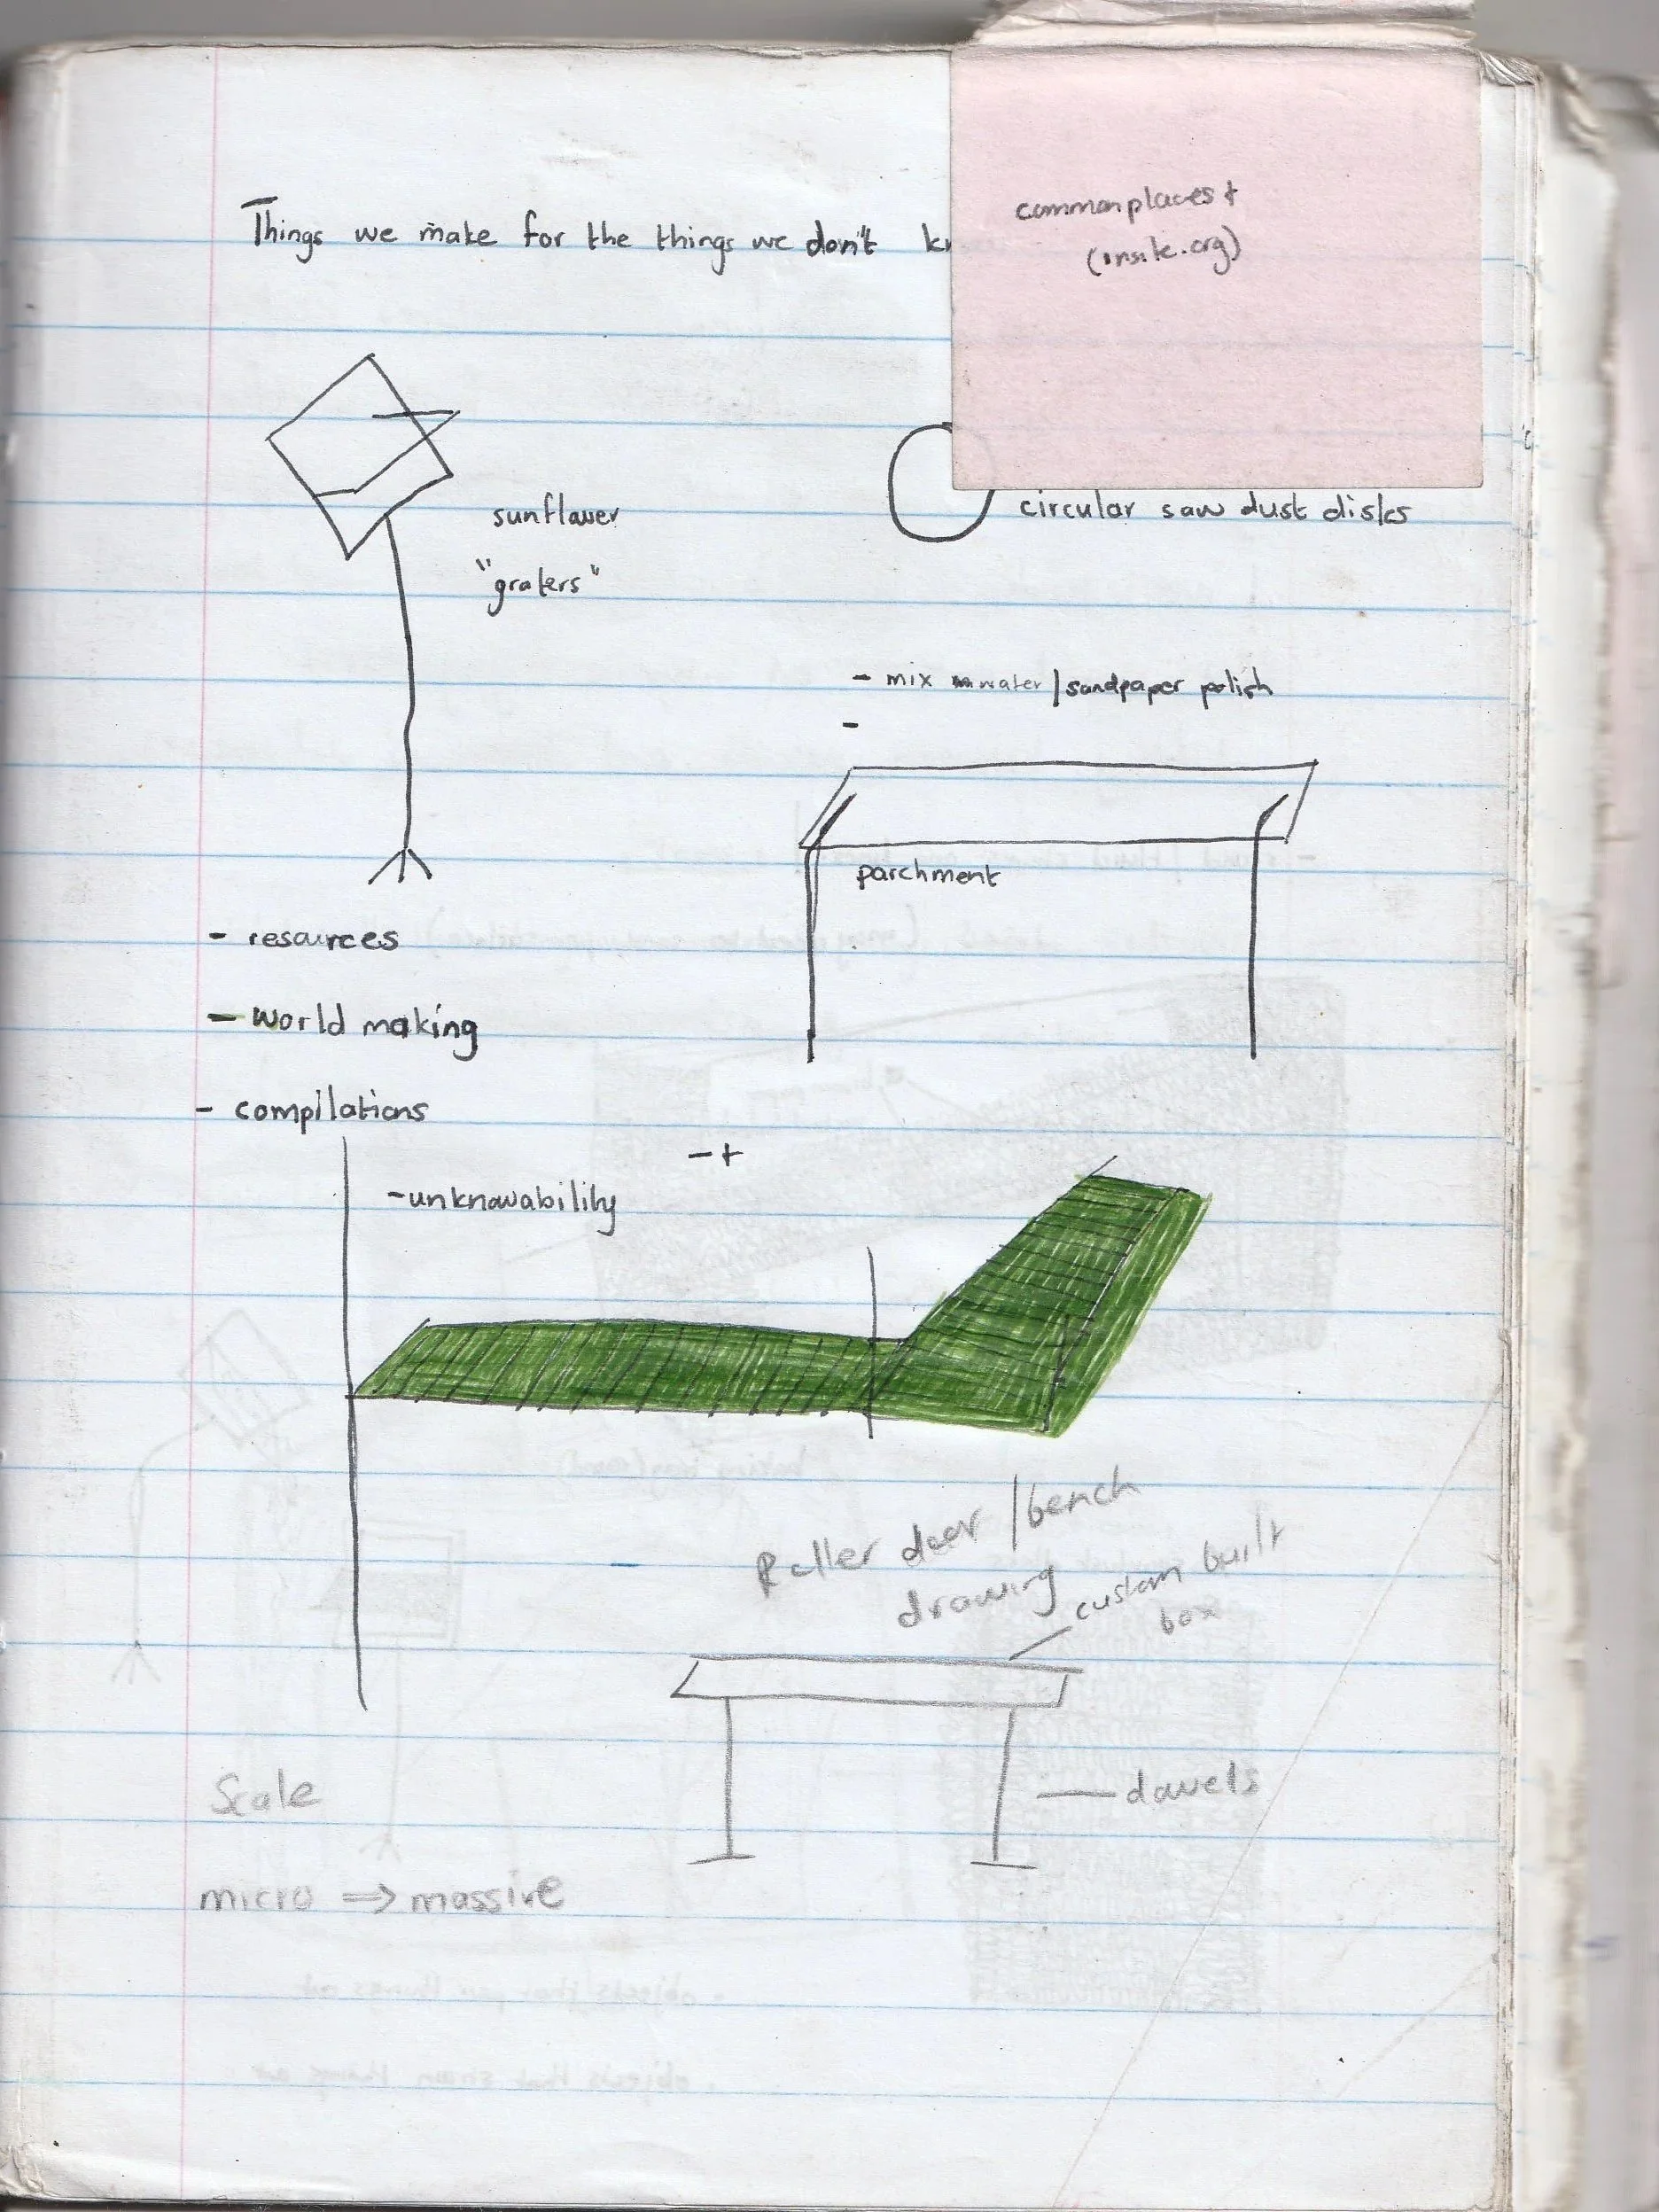 commonplaces +
(insite.org)
Things we make for the things we don't
sunflower
"graters"
circular saw dust disks
- mix water / sandpaper polish
-
parchment
- resources
- World making
- compilations
- +
- unknowability
Roller door / bench
drawing
custom built
box
Scale
dowels
micro ⇒ massive